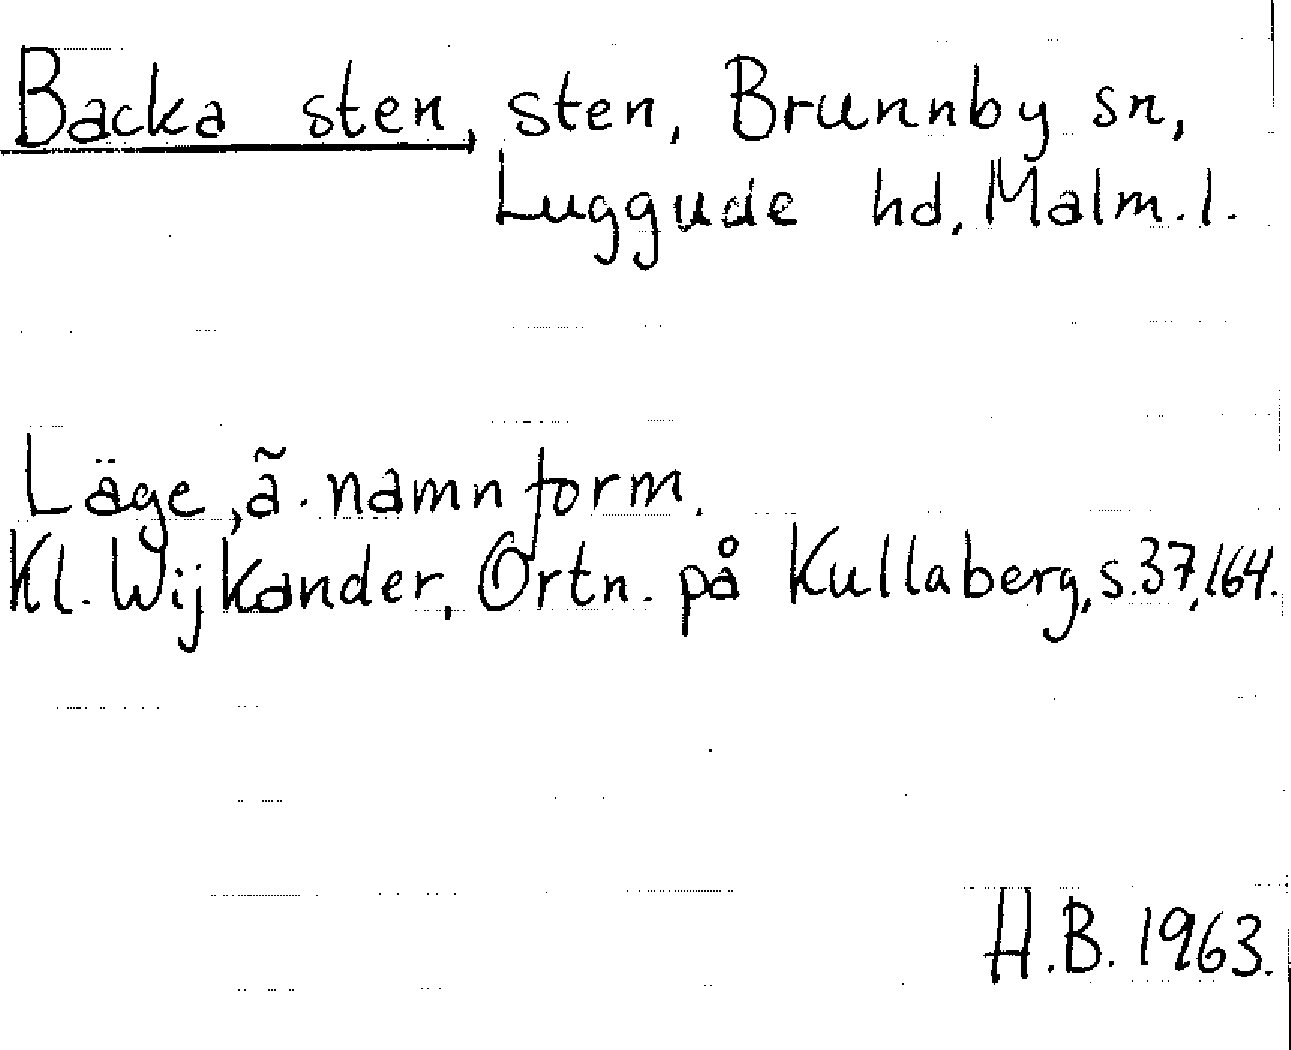 Backa sten, sten, Brunnby sn,
Luggude hd, Malm. l.
Läge, ä. namnform.
Kl. Wijkander, Ortn. på Kullaberg, s. 37, 164.
H.B. 1963.